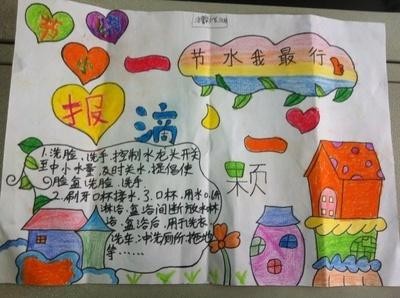 小
报
节水我最行
一
滴
一
颗
1.洗脸、洗手,控制水龙头开关
至中小水量,及时关水,提倡使
脸盆洗脸、洗手
2.刷牙口杯接水,3.口杯,用水
淋浴、盆浴间断放水淋
浴,盆浴后,用于洗衣
洗车、冲洗厕所、拖地
等……